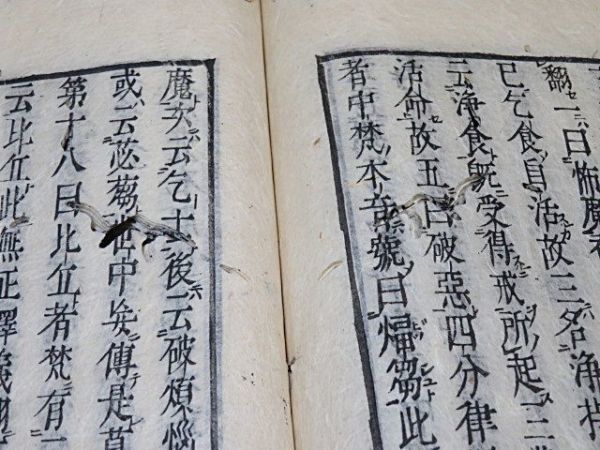 翻一曰怖魔者
已乞食自活故三名淨持
云淨食既受得戒所起三
活命故五曰破惡四分律
者中梵本音號曰煏芻此
魔次云乞士後云破煩惱
或云苾蒭世中矣傳是草
第十八曰比丘者梵有一
云比丘此無正譯義翻